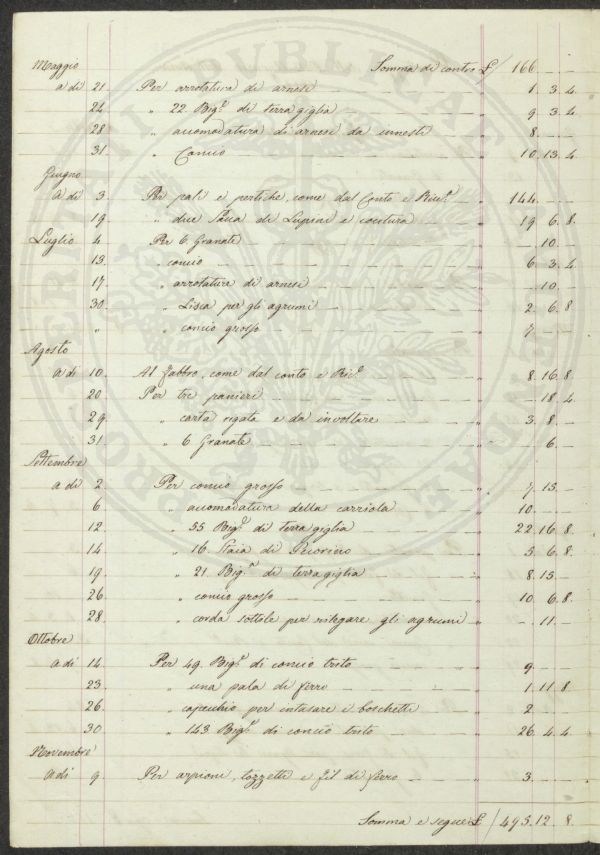 Maggio Somma di contro £ 166. — —
a di 21 Per arrotatura di arnesi 1. 3. 4
24 „ 22 Big.e di terra giglia 9. 3. 4
28 „ accomodatura di arnesi da innesti 8. — —
31 „ Concio 10. 13. 4
Giugno
a di 3 Per pali e pertiche, come dal Conto e Ric.ta 144. — —
19 „ due Staia di Lupini e cocitura 19. 6. 8
Luglio 4 Per 6 Granate — 10. —
13. „ concio 6. 3. 4
17. „ arrotature di arnesi — 10. —
30. „ Lisca per gli agrumi 2. 6. 8
„ „ concio grosso 7. — —
Agosto
a di 10 Al Fabbro, come dal conto e Ric.ta 8. 16. 8
20 Per tre panieri — 18. 4
29 „ carta rigata e da involtare 3. 8. —
31 „ 6 Granate — 6. —
Settembre
a di 2 Per concio grosso 7. 15. —
6 „ accomodatura della carriola 10. — —
12 „ 55 Big.e di terra giglia 22. 16. 8
14 „ 16 Staia di Pecorino 5. 6. 8
19 „ 21 Big.e di terra giglia 8. 15. —
26 „ concio grosso 10. 6. 8
28 „ corda sottile per rilegare gli agrumi — 11. —
Ottobre
a di 14 Per 49 Big.e di concio trito 9. — —
23 „ una pala di ferro 1. 11. 8
26 „ capecchio per intasare i boschetti 2. — —
30 „ 143 Big.e di concio trito 26. 4. 4
Novembre
a di 9 Per arpioni, tozzetti e fil di ferro 3. — —
Somma e segue £ 495. 12. 8